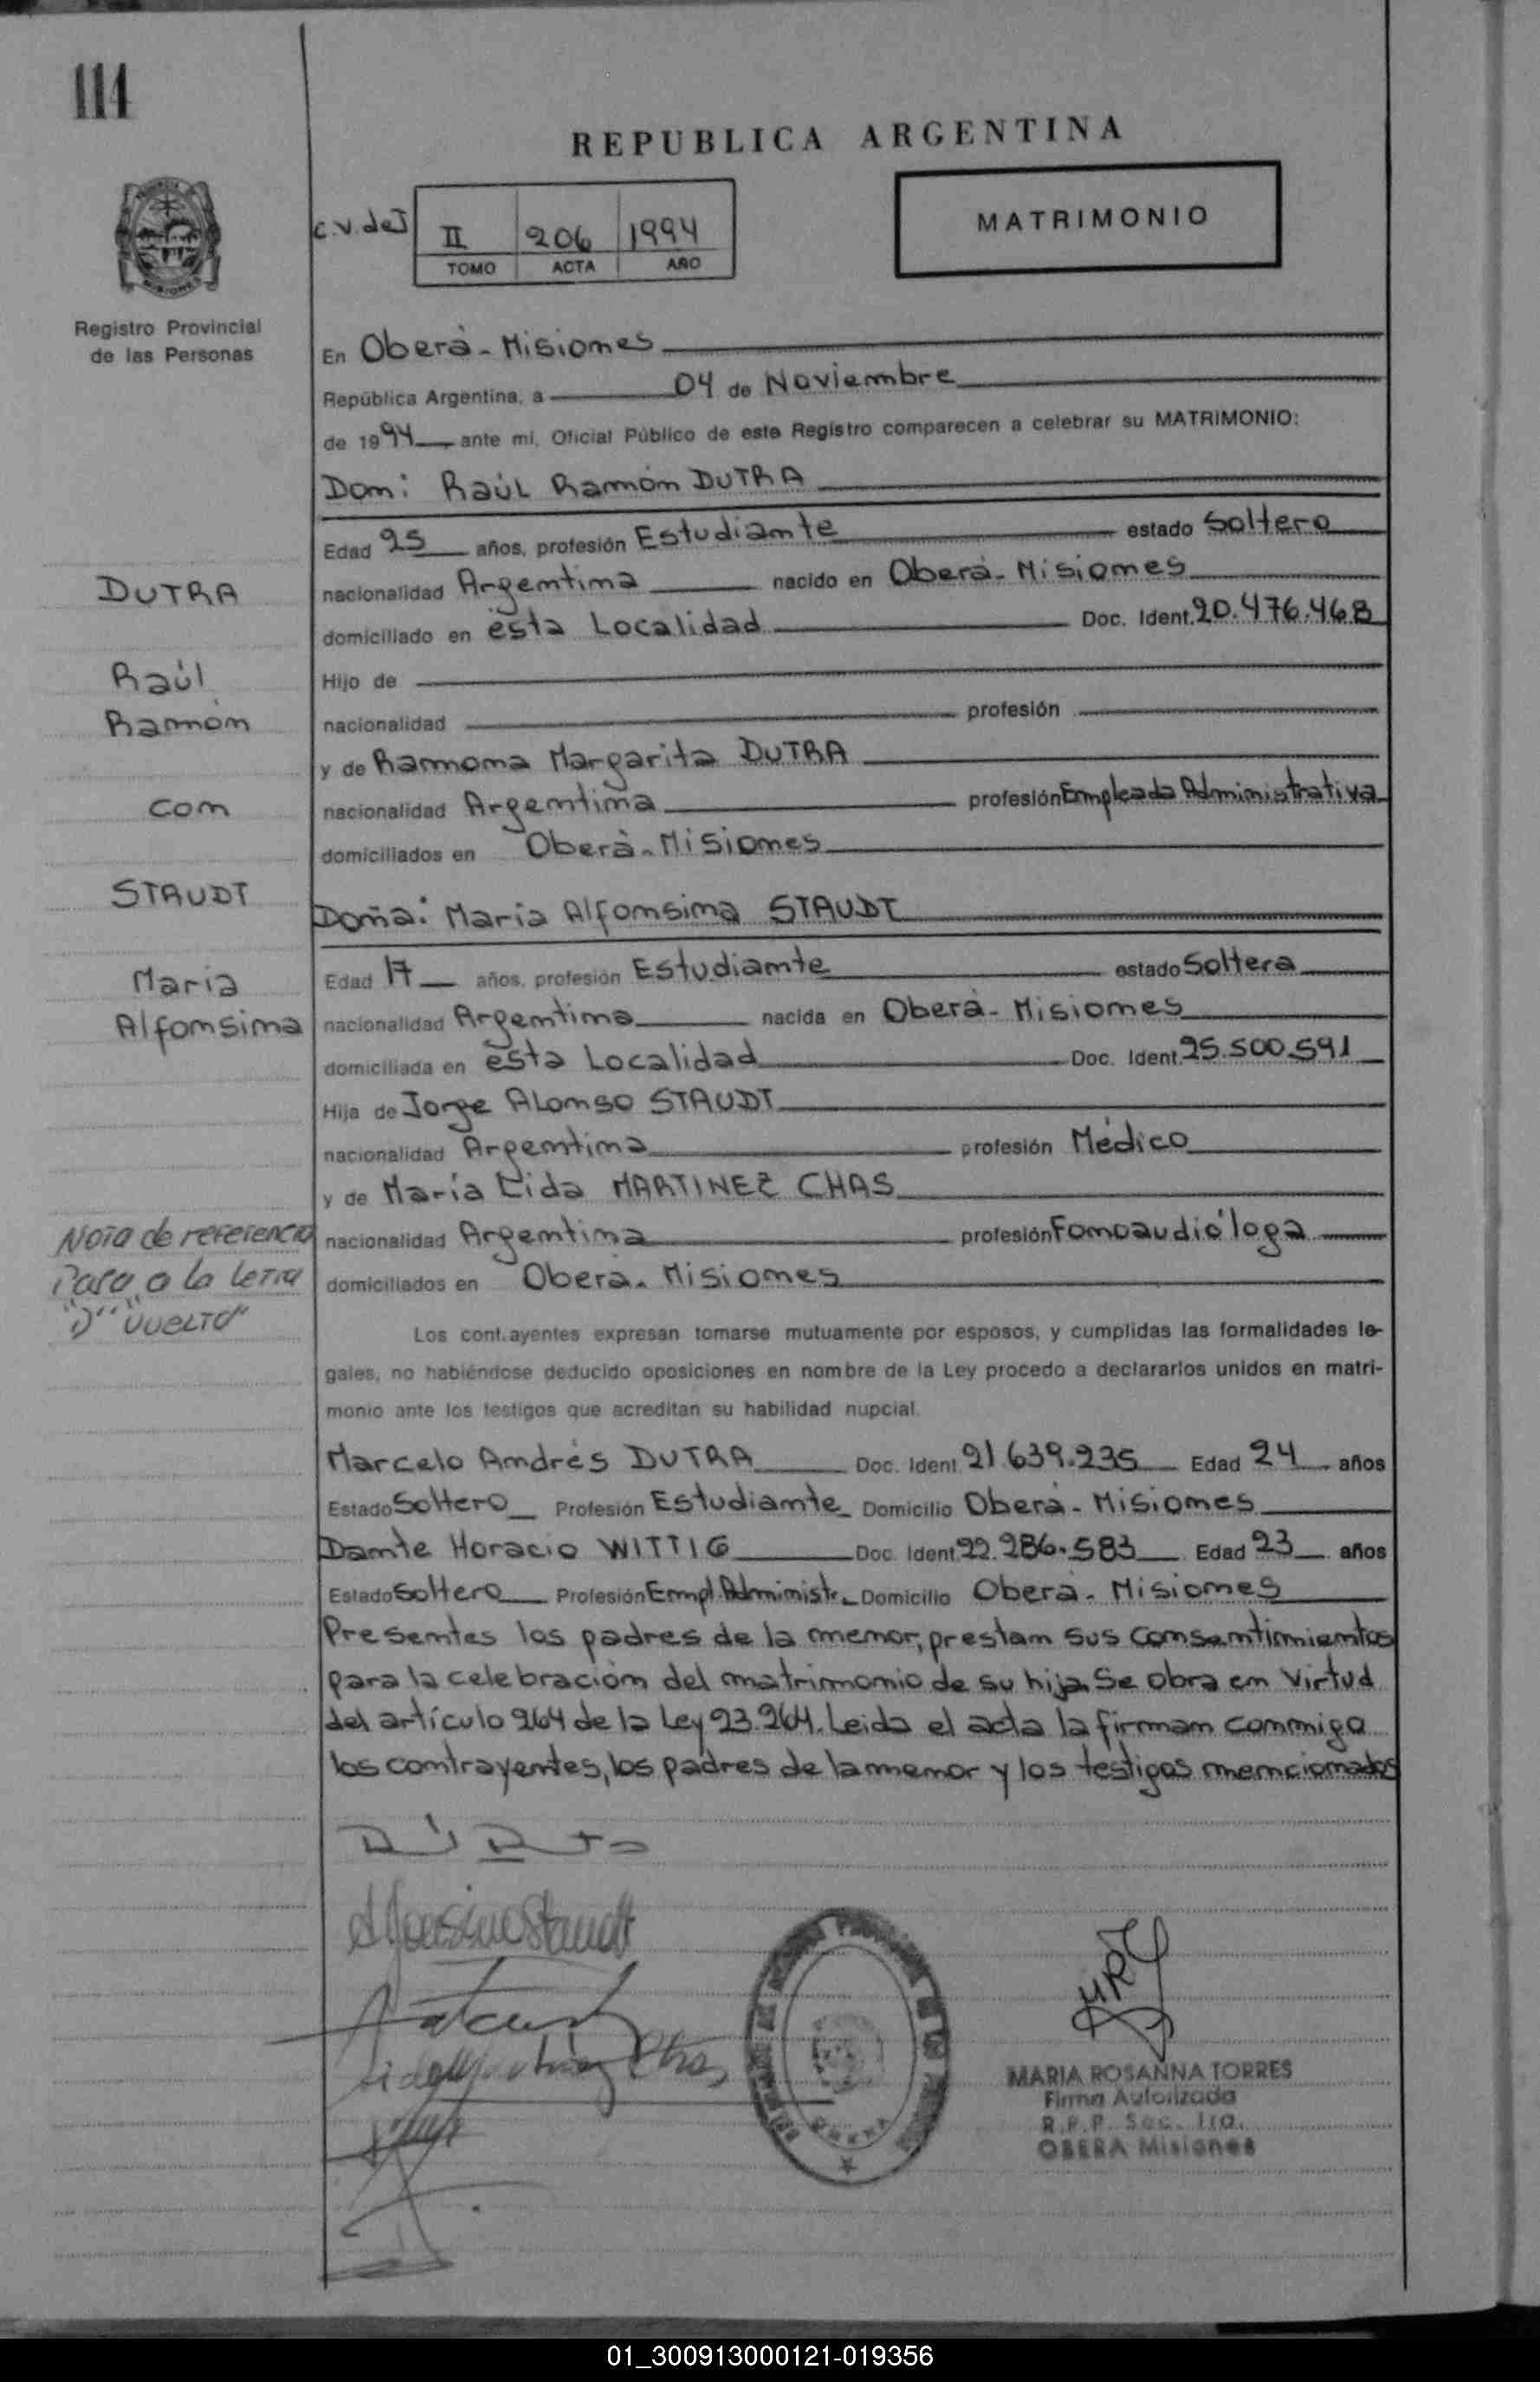 111
REPUBLICA ARGENTINA
C.V. de J
II 206 1994
TOMO ACTA AÑO
MATRIMONIO
Registro Provincial
de las Personas
En Oberá - Misiones
República Argentina, a 04 de Noviembre
de 1994 ante mí, Oficial Público de este Registro comparecen a celebrar su MATRIMONIO:
Don: Raúl Ramón DUTRA
Edad 25 años, profesión Estudiante estado Soltero
nacionalidad Argentina nacido en Oberá - Misiones
domiciliado en ésta Localidad Doc. Ident. 20.476.468
Hijo de
nacionalidad profesión
y de Ramona Margarita DUTRA
nacionalidad Argentina profesión Empleada Administrativa
domiciliados en Oberá - Misiones
Doña: María Alfonsina STAUDT
Edad 17 años, profesión Estudiante estado Soltera
nacionalidad Argentina nacida en Oberá - Misiones
domiciliada en ésta Localidad Doc. Ident. 25.500.591
Hija de Jorge Alonso STAUDT
nacionalidad Argentina profesión Médico
y de María Lida MARTINEZ CHAS
nacionalidad Argentina profesión Fonoaudióloga
domiciliados en Oberá - Misiones
DUTRA
Raúl
Ramón
con
STAUDT
María
Alfonsina
Nota de referencia
Pasa a la letra
"D" "VUELTO"
Los contrayentes expresan tomarse mutuamente por esposos, y cumplidas las formalidades le-
gales, no habiéndose deducido oposiciones en nombre de la Ley procedo a declararlos unidos en matri-
monio ante los testigos que acreditan su habilidad nupcial.
Marcelo Andrés DUTRA Doc. Ident. 21.639.235 Edad 24 años
Estado Soltero Profesión Estudiante Domicilio Oberá - Misiones
Dante Horacio WITTIG Doc. Ident. 22.286.583 Edad 23 años
Estado Soltero Profesión Empl. Administ. Domicilio Oberá - Misiones
Presentes los padres de la menor, prestan sus consentimientos
para la celebración del matrimonio de su hija. Se obra en virtud
del artículo 264 de la Ley 23.264. Leida el acta la firman conmigo
los contrayentes, los padres de la menor y los testigos mencionados
MARIA ROSANNA TORRES
Firma Autorizada
R.P.P. Sec. 1ra.
OBERA Misiones
01_300913000121-019356